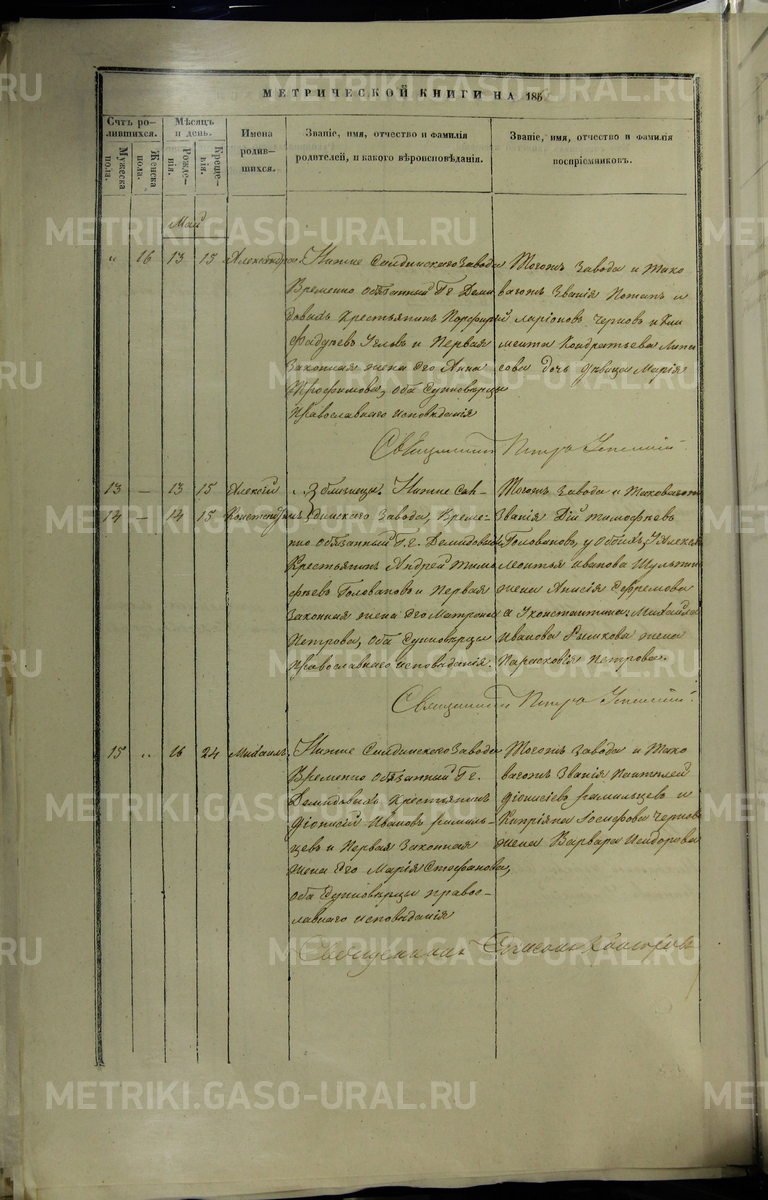 МЕТРИЧЕСКОЙ КНИГИ НА 186
Счетъ родившихся.
Мужеска пола.
Женска пола.
Мѣсяцъ и день.
Рожденія.
Крещенія.
Имена родившихся.
Званіе, имя, отчество и фамилія родителей, и какого вѣроисповѣданія.
Званіе, имя, отчество и фамилія воспріемниковъ.
Май
" 16 13 15 Александра
Нижне Салдинскаго Завода
Временно обязанный Гг. Деми
довыхъ Крестьянинъ Порфирій
Фадѣевъ Углов и Первая
Законная жена Его Анна
Трофимова, оба Единовѣрцы
Православнаго исповѣданія
Тогожъ Завода и Тако
вагожъ Званія Потапъ и
Ларіоновъ Черновъ и Кли
мента Кондратьева
дочь дѣвица Марія
Священникъ Петръ
13 — 13 15 Алексій
14 — 14 15 Константинъ
близнецы. Нижне Сал-
динскаго Завода, Време-
нно обязанный Гг. Демидовыхъ
Крестьянинъ Андрей Тимо
фѣевъ Головановъ и Первая
Законная жена Его Матрона
Петрова, оба Единовѣрцы
Православнаго исповѣданія.
Тогожъ Завода и Таковагожъ
Званія Дій Тимофѣевъ
Головановъ, у обоихъ, у Алексія
Леонтья Иванова
жена Анисія Ефремова
а у Константина: Михайла
Иванова жена
Парасковія Петрова.
Священникъ Петръ
15 " 16 24 Михаилъ
Нижне Салдинскаго Завода
Временно обязанный Гг.
Демидовыхъ Крестьянинъ
Діонисій Ивановъ Фамиль-
цевъ и Первая Законная
жена Его Марія Стефанова,
оба Единовѣрцы правос-
лавнаго исповѣданія
Тогожъ Завода и Тако
вагожъ Званія Пантелей
Діонисіевъ Фамильцевъ и
Кипріяна Іосифова Чернов
жена Варвара Исидорова
Священникъ
METRIKI.GASO-URAL.RU